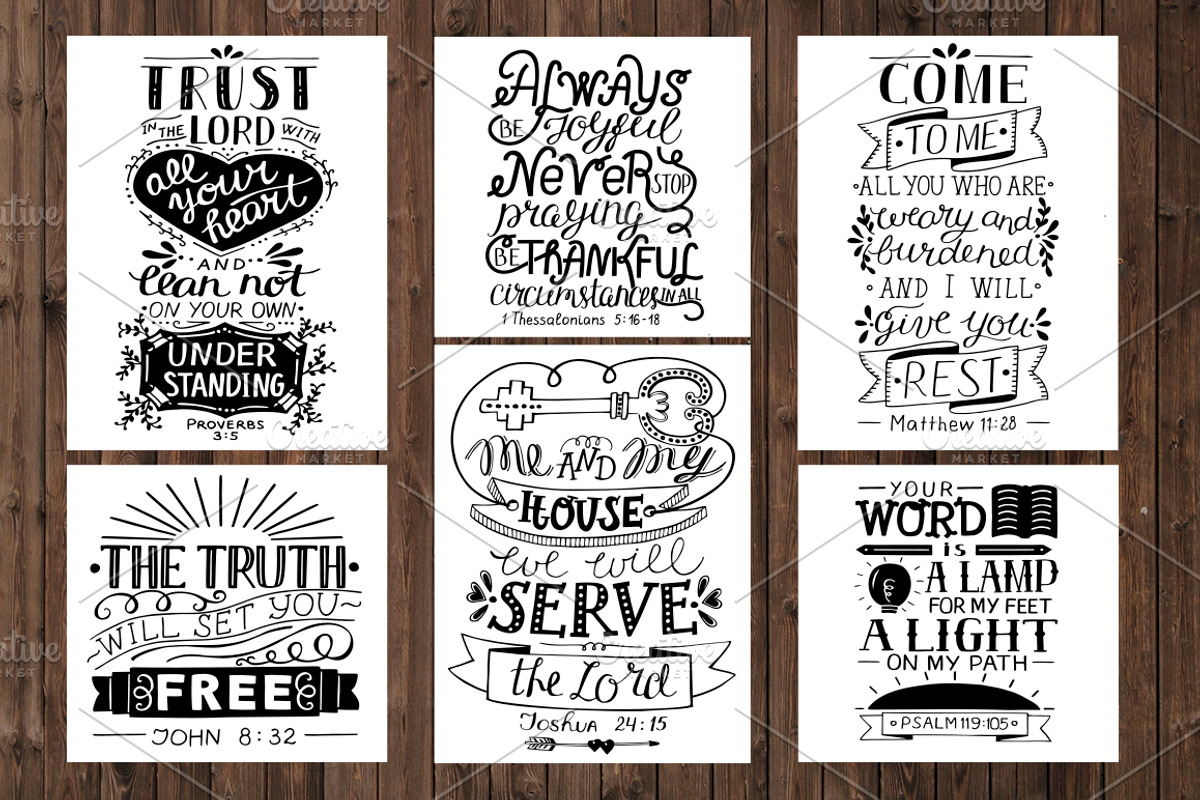 TRUST
IN THE LORD WITH
all
your
heart
AND
lean not
ON YOUR OWN
UNDER
STANDING
PROVERBS
3:5
ALWAYS
BE Joyful
NEVER STOP
praying
BE THANKFUL
circumstances IN ALL
1 Thessalonians 5:16-18
COME
TO ME
ALL YOU WHO ARE
weary and
burdened
AND I WILL
give you
REST
Matthew 11:28
THE TRUTH
WILL SET YOU
FREE
JOHN 8:32
Me AND My
HOUSE
we will
SERVE
the Lord
Joshua 24:15
YOUR
WORD
is
A LAMP
FOR MY FEET
A LIGHT
ON MY PATH
PSALM 119:105
Creative
MARKET
Creative
MARKET
Creative
MARKET
Creative
MARKET